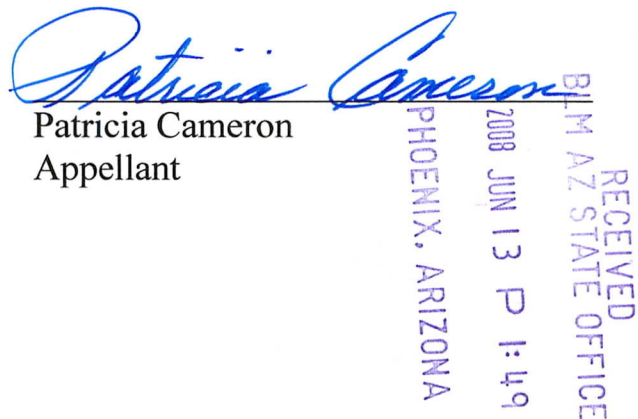 Patricia Cameron
Patricia Cameron
Appellant
RECEIVED
BLM AZ STATE OFFICE
2008 JUN 13 P 1:49
PHOENIX, ARIZONA